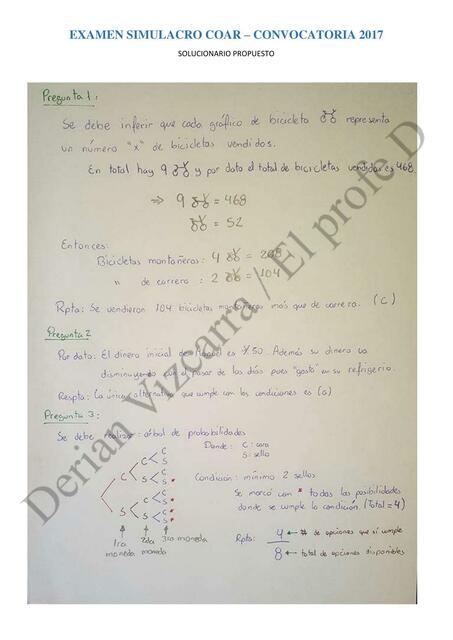 EXAMEN SIMULACRO COAR – CONVOCATORIA 2017
SOLUCIONARIO PROPUESTO
Pregunta 1:
Se debe inferir que cada gráfico de bicicleta representa
un número "x" de bicicletas vendidos.
En total hay 9 y por dato el total de bicicletas vendidas es 468.
⇒ 9 = 468
= 52
Entonces:
Bicicletas montañeras: 4 = 208
" de carrera : 2 = 104
Rpta: Se vendieron 104 bicicletas montañeras más que de carrera. (C)
Pregunta 2
Por dato: El dinero inicial de es S/50. Además su dinero va
disminuyendo con el pasar de los días pues "gasta" en su refrigerio.
Respta: La única alternativa que cumple con las condiciones es (a)
Pregunta 3:
Se debe realizar: árbol de probabilidades
Donde: C: cara
S: sello
C C C S S C S
S C C S S C S
Condición: mínimo 2 sellos
Se marcó con * todas las posibilidades
donde se cumple la condición. (Total = 4)
1ra moneda 2da moneda 3ra moneda
Rpta: 4 ← # de opciones que sí cumple
8 ← total de opciones disponibles
Derian Vizcarra / El profe D